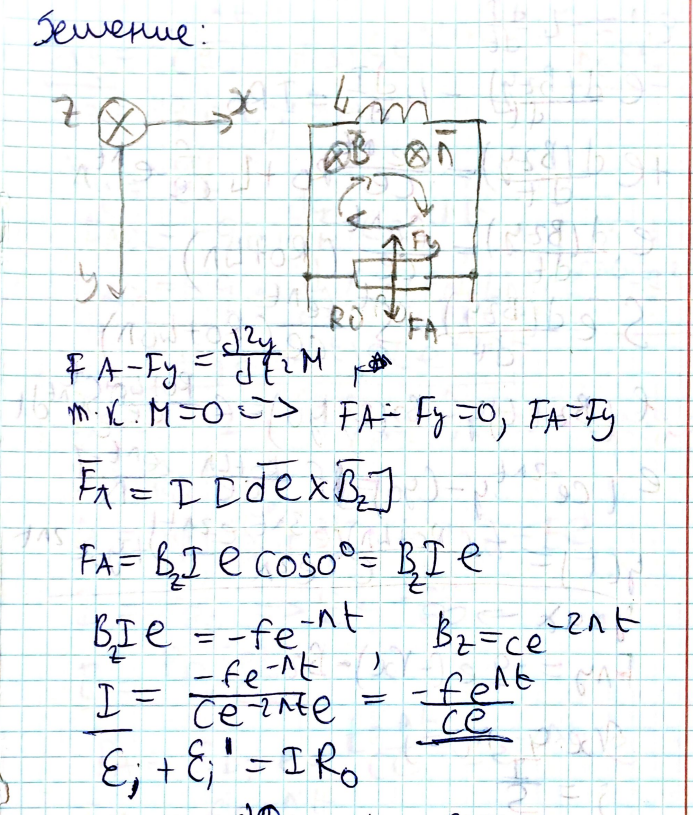 Решение:
z x L
⊗B̄ ⊗n̄
y Fy
R0 FA
FA-Fy = d²y/dt² M
т.к. M=0 => FA-Fy=0, FA=Fy
F̄A = I [dl̄ × B̄z]
FA = BzI l cos0° = BzI l
BzI l = -fe^-nt, Bz=ce^-2nt
I = -fe^-nt / ce^-2nt l = -fe^nt / cl
Ɛi + Ɛi' = IR0